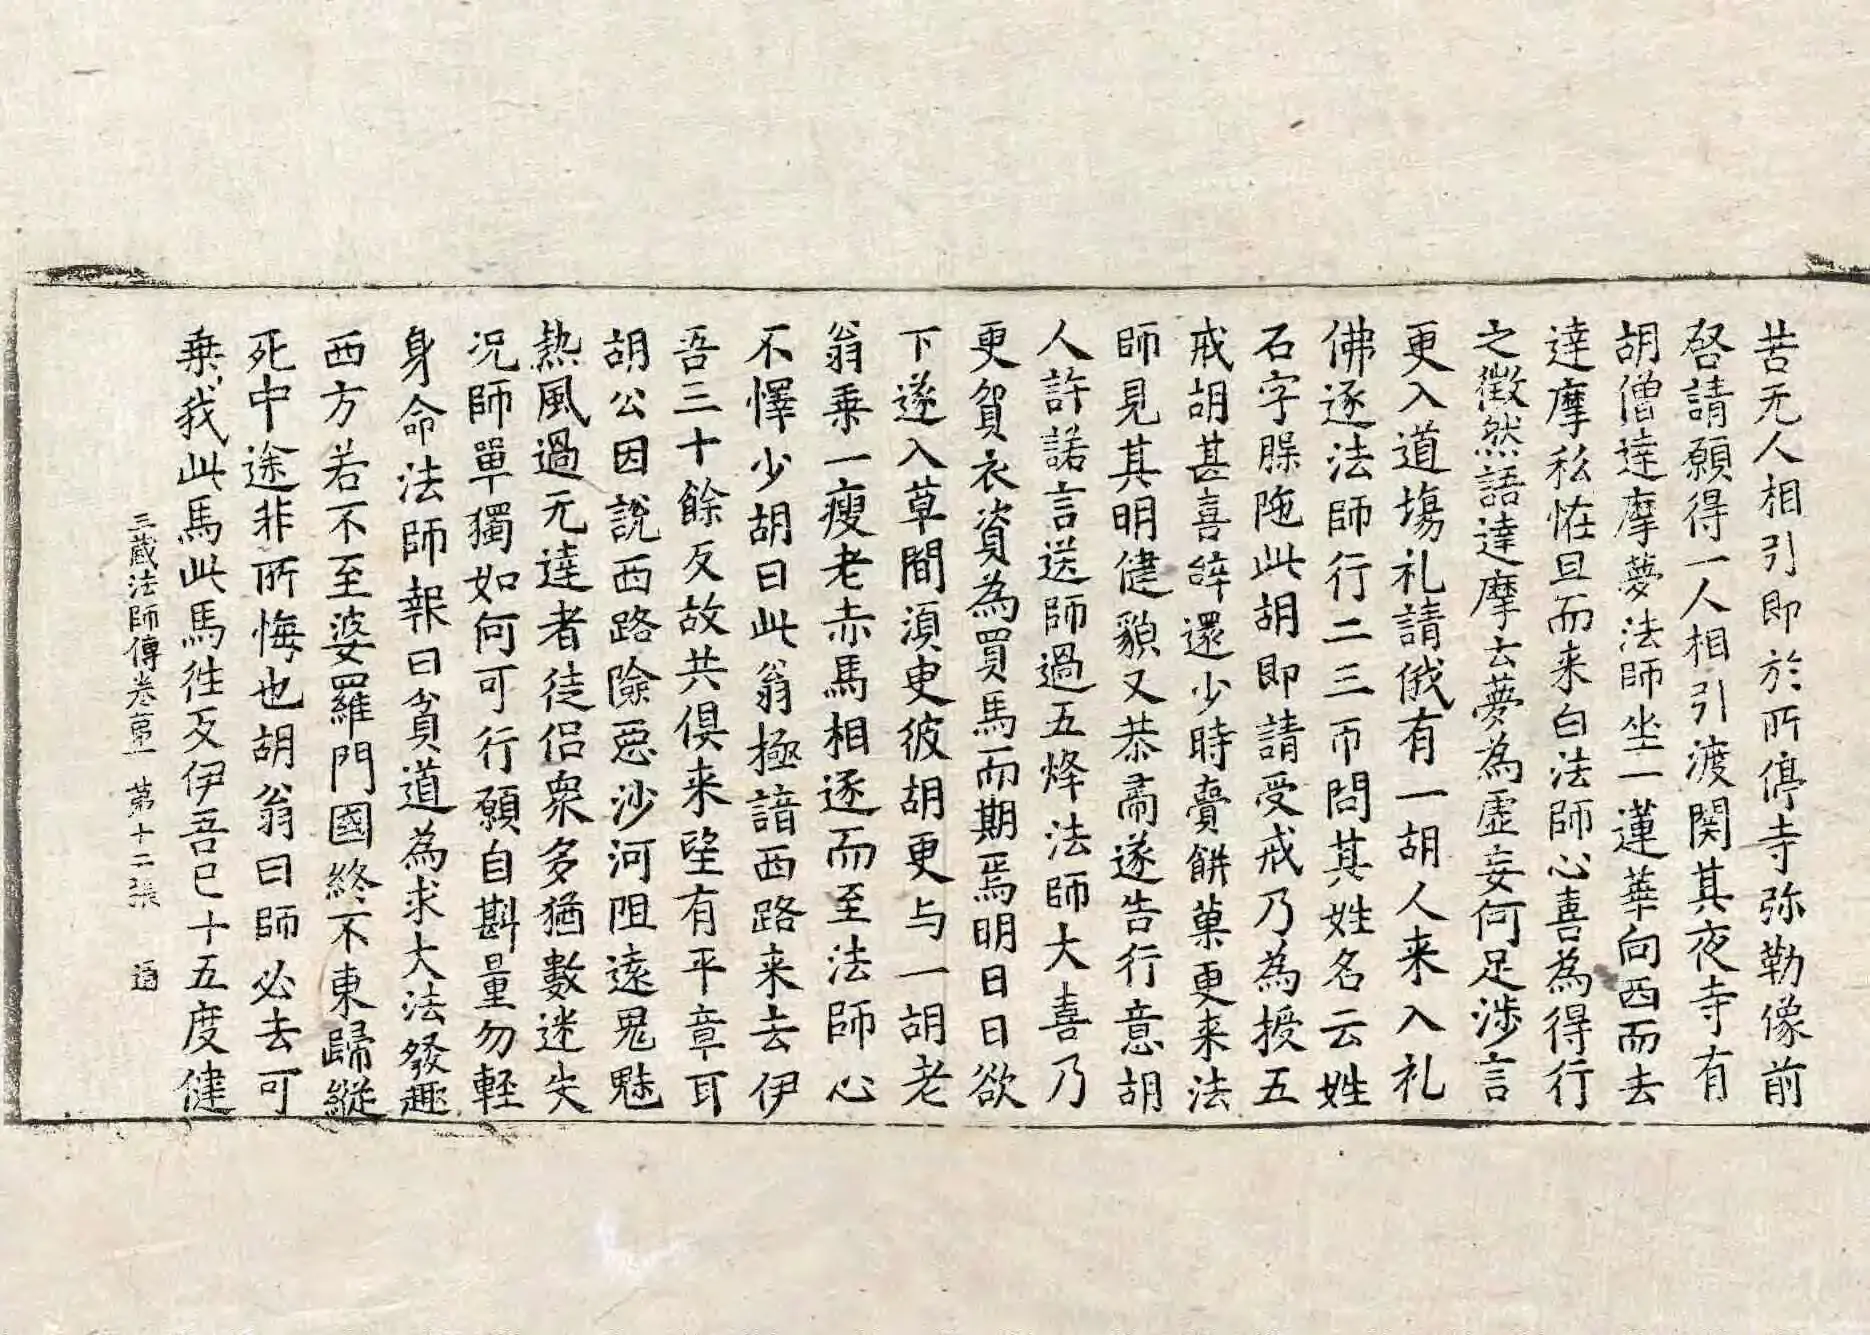 苦无人相引即於所停寺弥勒像前
啓請願得一人相引渡関其夜寺有
胡僧達摩夢法師坐一蓮華向西而去
達摩私恠旦而来白法師心喜為得行
之徵然語達摩云夢為虛妄何足涉言
更入道場礼請俄有一胡人来入礼
佛逐法師行二三帀問其姓名云姓
石字槃陁此胡即請受戒乃為授五
戒胡甚喜辝還少時賷餅菓更来法
師見其明健皃又恭肅遂告行意胡
人許諾言送師過五烽法師大喜乃
更貿衣資為買馬而期焉明日日欲
下遂入草間湏臾彼胡更与一胡老
翁乗一瘦老赤馬相逐而至法師心
不懌少胡曰此翁極諳西路来去伊
吾三十餘反故共俱来望有平章耳
胡公因說西路險惡沙河阻遠鬼魅
熱風過无達者徒侣衆多猶數迷失
况師單獨如何可行願自斟量勿輕
身命法師報曰貧道為求大法發趣
西方若不至婆羅門國終不東歸縱
死中途非所悔也胡翁曰師必去可
乗我此馬此馬往反伊吾已十五度健
三蔵法師傳卷苐一 苐十二張